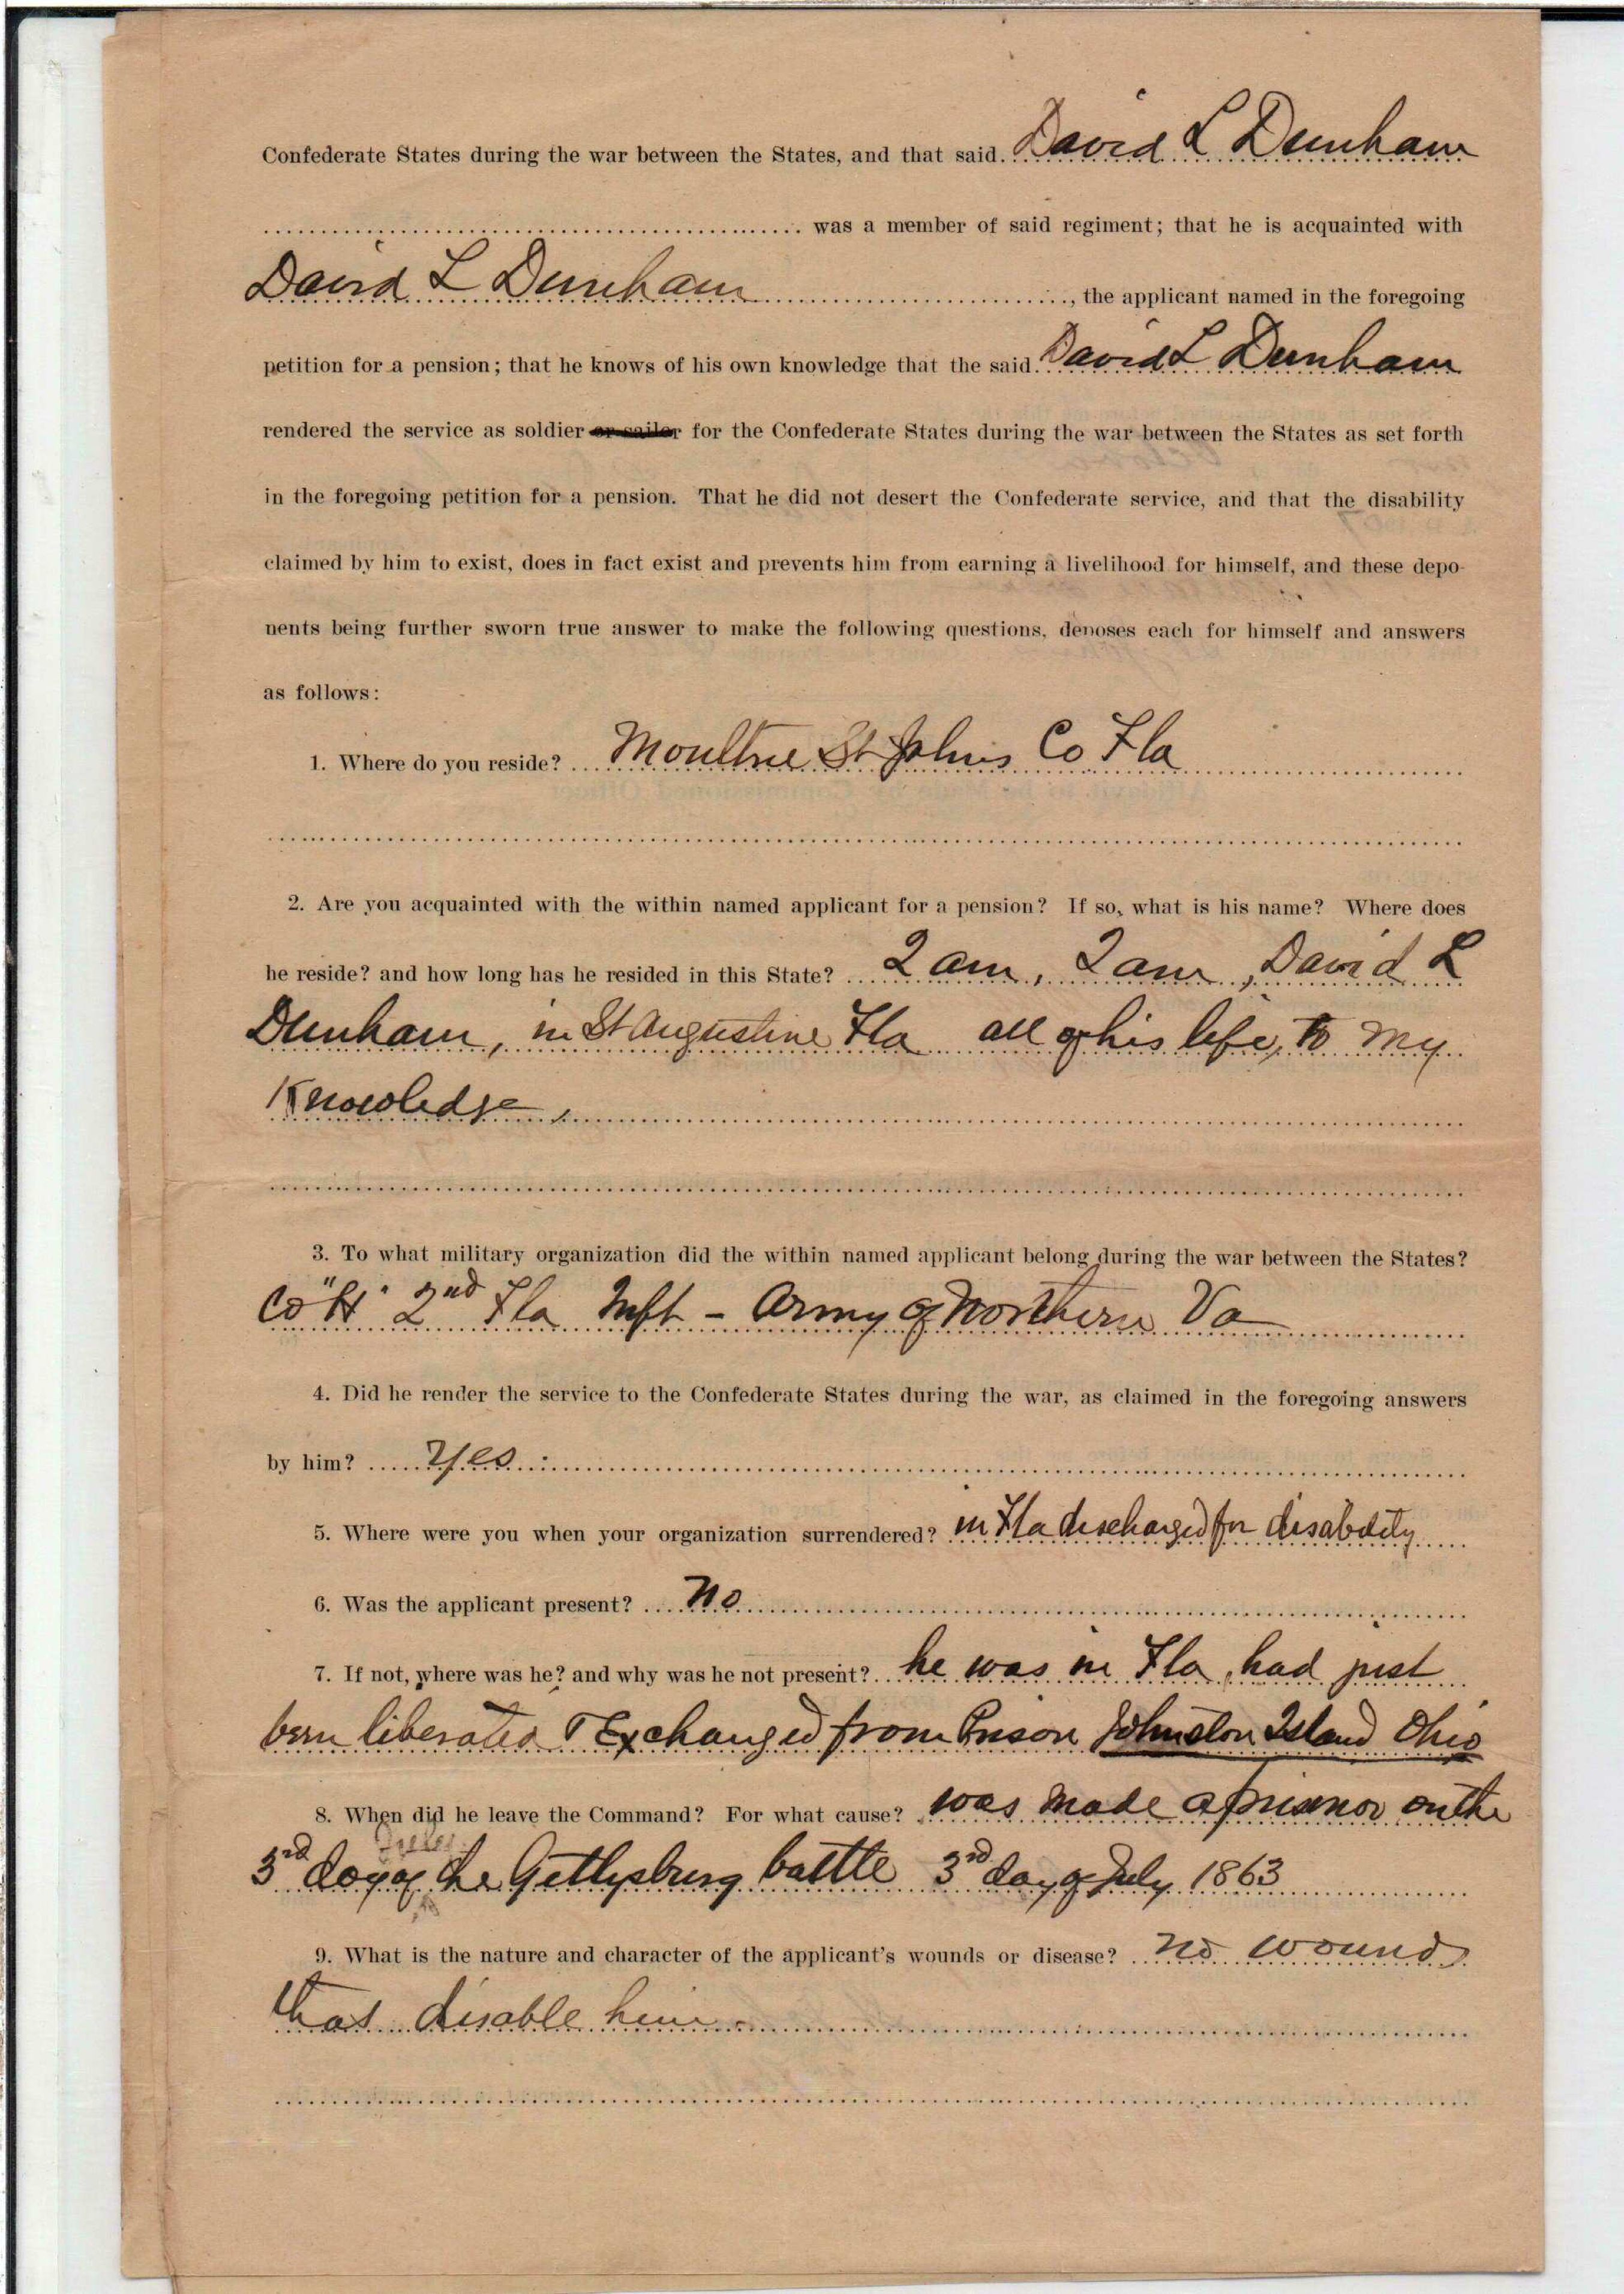 Confederate States during the war between the States, and that said David L Dunham
was a member of said regiment; that he is acquainted with
David L Dunham, the applicant named in the foregoing
petition for a pension; that he knows of his own knowledge that the said David L Dunham
rendered the service as soldier or sailor for the Confederate States during the war between the States as set forth
in the foregoing petition for a pension. That he did not desert the Confederate service, and that the disability
claimed by him to exist, does in fact exist and prevents him from earning a livelihood for himself, and these depo-
nents being further sworn true answer to make the following questions, deposes each for himself and answers
as follows:
1. Where do you reside? Moultrie St Johns Co Fla
2. Are you acquainted with the within named applicant for a pension? If so, what is his name? Where does
he reside? and how long has he resided in this State? I am, I am, David L
Dunham, in St Augustine Fla all of his life, to my
Knowledge,
3. To what military organization did the within named applicant belong during the war between the States?
Co "H" 2nd Fla Inft - Army of Northern Va
4. Did he render the service to the Confederate States during the war, as claimed in the foregoing answers
by him? Yes.
5. Where were you when your organization surrendered? in Fla discharged for disability
6. Was the applicant present? No
7. If not, where was he? and why was he not present? he was in Fla, had just
been liberated & Exchanged from Prison Johnston Island Ohio
8. When did he leave the Command? For what cause? was made a prisenor on the
3rd day of the Gettysburg battle 3rd day of July 1863
9. What is the nature and character of the applicant's wounds or disease? no wounds
that disable him